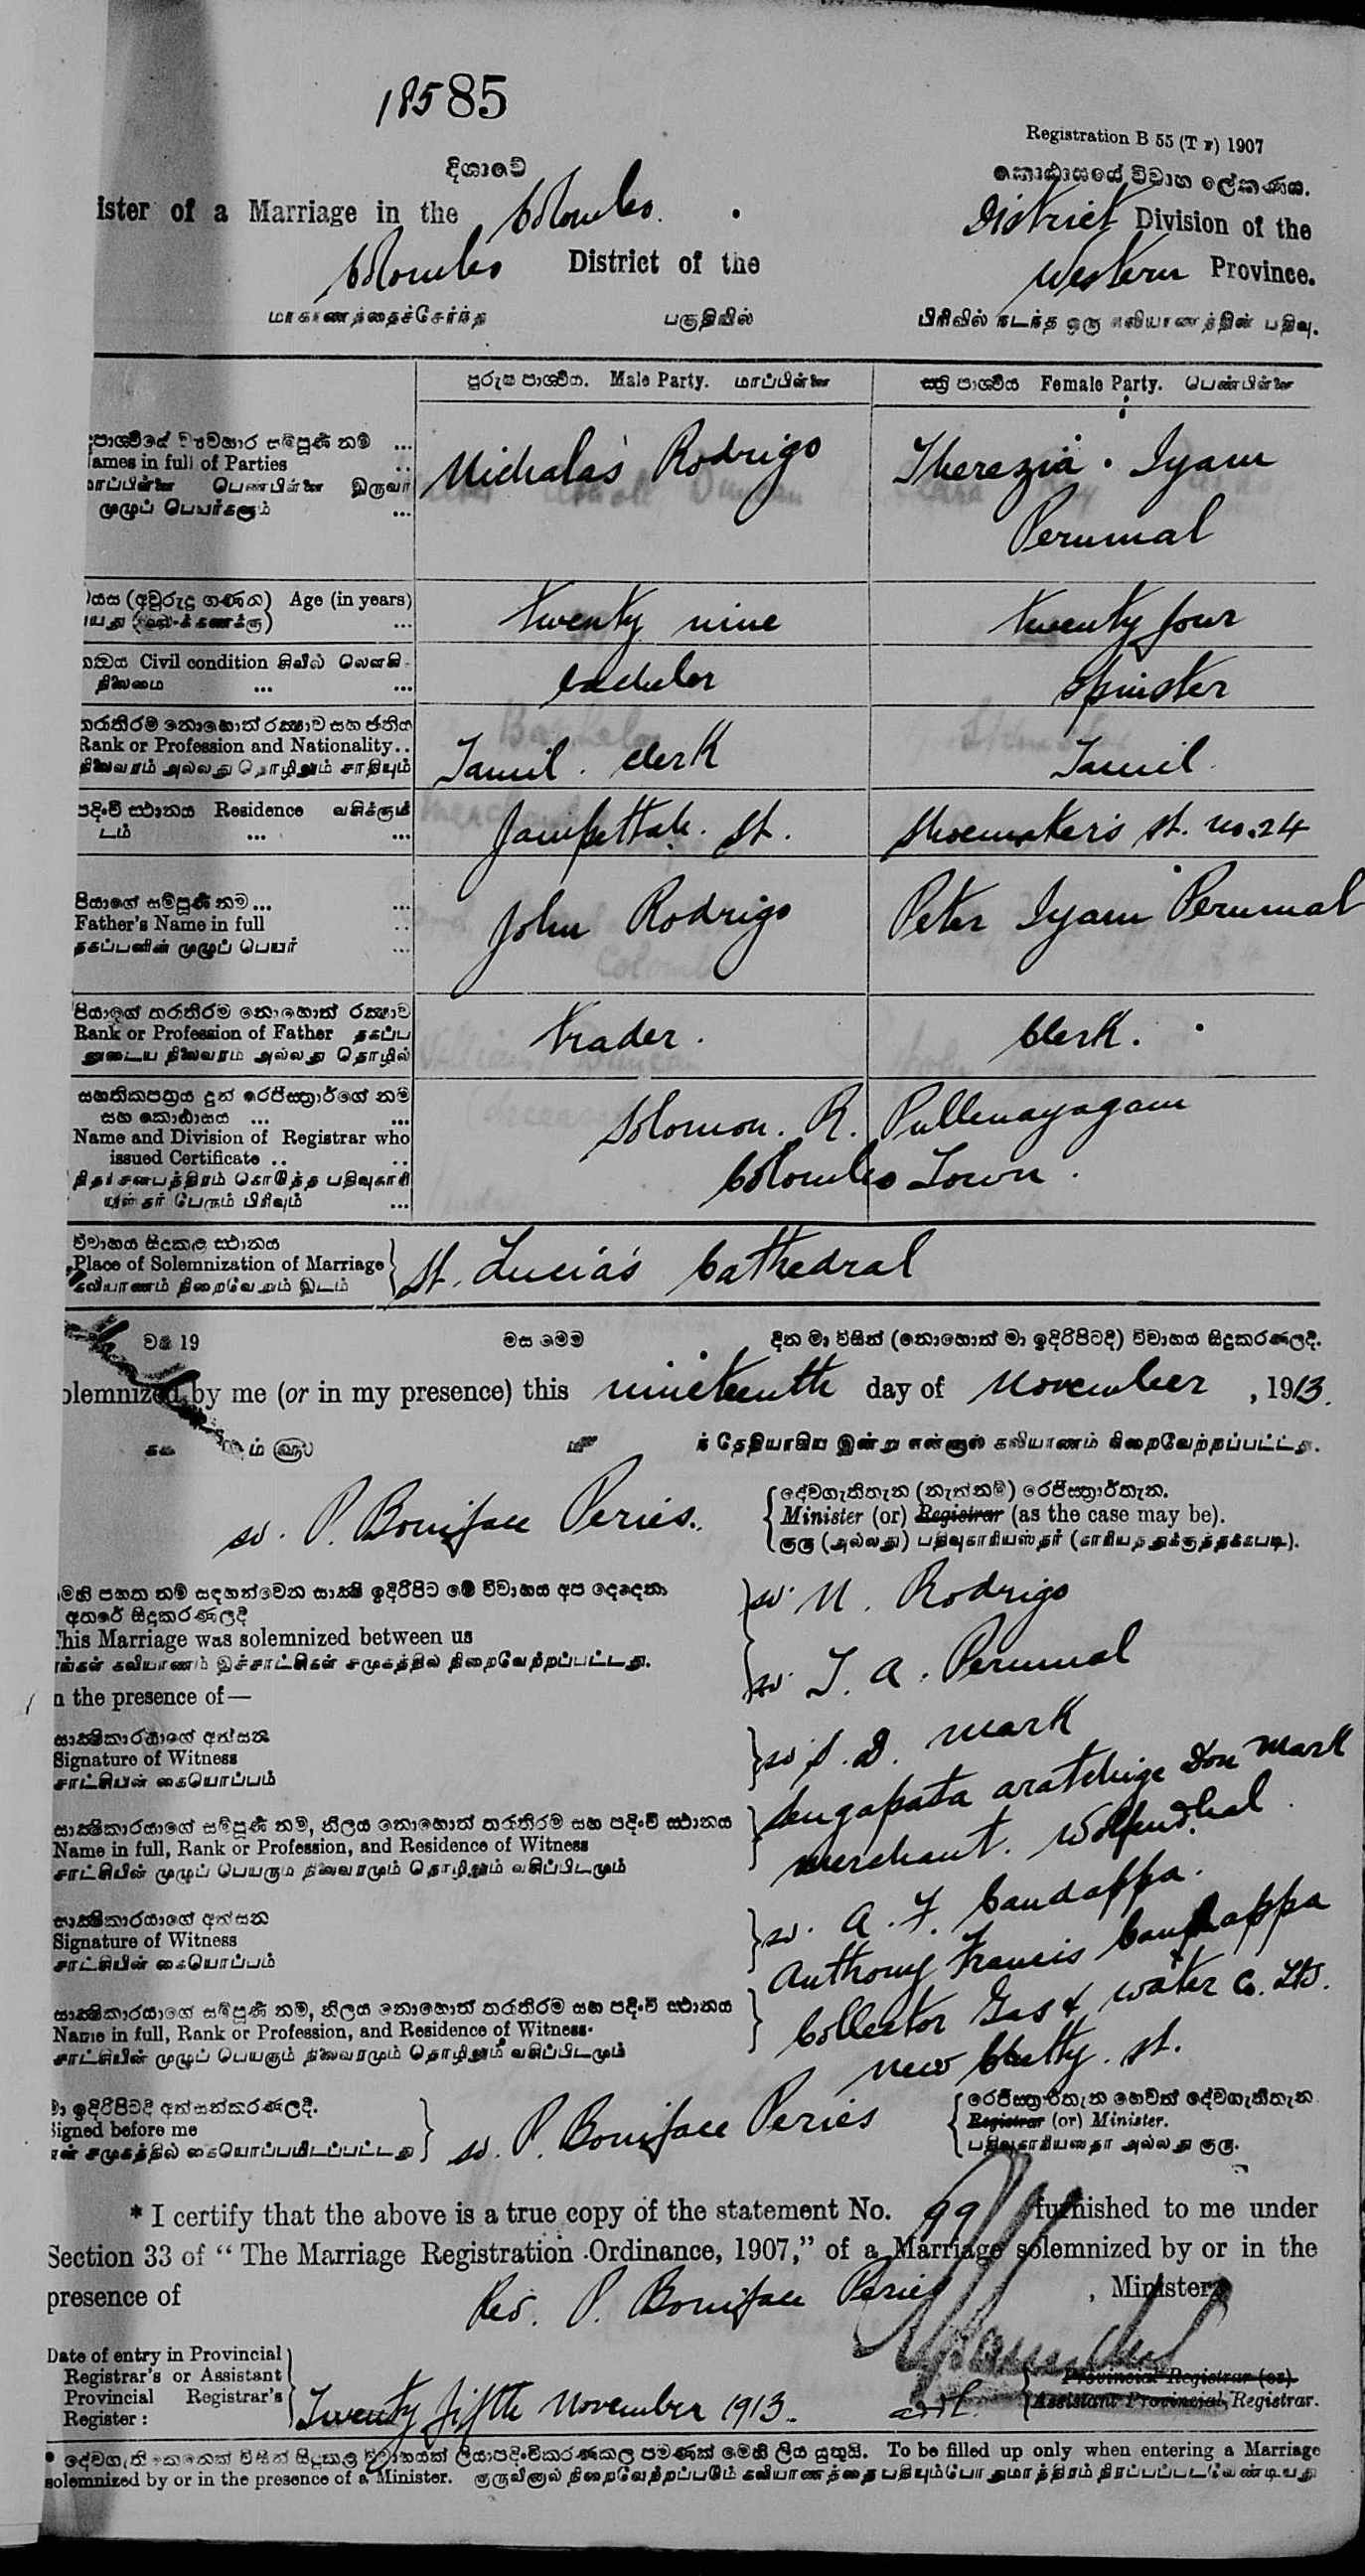 18585
Registration B 55 (T F) 1907
දිශාවේ
කොඨාසයේ විවාහ ලේකණය.
ister of a Marriage in the Colombo. District Division of the
Colombo District of the Western Province.
மாகாணத்தைச்சேர்ந்த பகுதியில் பிரிவில் நடந்த ஒரு கலியாணத்தின் பதிவு.
පුරුෂ පාශ්වීය. Male Party. மாப்பிள்ளை
ස්ත්‍රි පාශ්වීය Female Party. பெண்பிள்ளை
ව්‍යවහාර සම්පූර්ණ නම් ...
ames in full of Parties ..
மாப்பிள்ளை பெண்பிள்ளை இருவர்
முழுப் பெயர்களும் ...
Nicholas Rodrigo
Therezia Iyam
Perumal
වයස (අවුරුදු ගණන) Age (in years)
twenty nine
twenty four
Civil condition சிவில்
நிலைமை ... ...
bachelor
Spinster
තරාතිරම නොහොත් රක්ෂාව සහ ජාතිය
Rank or Profession and Nationality..
நிலைவரம் அல்லது தொழிலும் சாதியும்
Tamil. Clerk
Tamil.
පදිංචි ස්ථානය Residence வசிக்குமி
டம் ... ...
Jampettah. St.
Shoemaker's St. No. 24
පියාගේ සම්පූර්ණ නම ... ...
Father's Name in full ..
தகப்பனின் முழுப் பெயர் ...
John Rodrigo
Peter Iyam Perumal
පියාගේ තරාතිරම නොහොත් රක්ෂාව
Rank or Profession of Father தகப்ப
னுடைய நிலைவரம் அல்லது தொழில்
Trader.
Clerk.
සහතිකපත්‍රය දුන් රෙජිස්ත්‍රාර්ගේ නම
සහ කොඨාසය ... ...
Name and Division of Registrar who
issued Certificate .. ..
கொடுத்த பதிவுகாரி
பேரும் பிரிவும் ...
Solomon. R. Pullenayagam
Colombo Town.
විවාහය සිදුකළ ස්ථානය
Place of Solemnization of Marriage
கலியாணம் நிறைவேறும் இடம்
St. Lucia's Cathedral
වර්ෂ 19 මස මෙම දින මා විසින් (නොහොත් මා ඉදිරිපිටදී) විවාහය සිදුකරණලදී.
olemnized by me (or in my presence) this nineteenth day of November, 1913.
தேதியாகிய இன்று என்னால் கலியாணம் நிறைவேற்றப்பட்டது.
sd. P. Boniface Peries.
දේවගැතිතැන (නැත්නම්) රෙජිස්ත්‍රාර්තැන.
Minister (or) Registrar (as the case may be).
குரு (அல்லது) பதிவுகாரியஸ்தர் (காரியத்துக்குத்தக்கபடி).
මෙහි පහත නම් සඳහන්වෙන සාක්ෂි ඉදිරිපිට මේ විවාහය අප දෙදෙනා
අතරේ සිදුකරණලදී
This Marriage was solemnized between us
எங்கள் கலியாணம் இச்சாட்சிகள் சமுகத்தில் நிறைவேற்றப்பட்டது.
n the presence of—
sd. N. Rodrigo
sd. T. A. Perumal
සාක්ෂිකාරයාගේ අත්සන
Signature of Witness
சாட்சியின் கையொப்பம்
sd. S. D. Mark
සාක්ෂිකාරයාගේ සම්පූර්ණ නම, නිලය නොහොත් තරාතිරම සහ පදිංචි ස්ථානය
Name in full, Rank or Profession, and Residence of Witness
சாட்சியின் முழுப் பெயரும் நிலைவரமும் தொழிலும் வசிப்பிடமும்
aratchige Don Mark
Merchant. Wolfendhal.
සාක්ෂිකාරයාගේ අත්සන
Signature of Witness
சாட்சியின் கையொப்பம்
sd. A. F. Candappa.
සාක්ෂිකාරයාගේ සම්පූර්ණ නම, නිලය නොහොත් තරාතිරම සහ පදිංචි ස්ථානය
Name in full, Rank or Profession, and Residence of Witness.
சாட்சியின் முழுப் பெயரும் நிலைவரமும் தொழிலும் வசிப்பிடமும்
Anthony Francis Candappa
Collector Gas & Water Co. Ltd.
New Chetty. St.
මා ඉදිරිපිටදී අත්සන්කරණලදී.
Signed before me
என் சமுகத்தில் கையொப்பமிடப்பட்டது
sd. P. Boniface Peries
රෙජිස්ත්‍රාර්තැන හෙවත් දේවගැතිතැන
Registrar (or) Minister.
பதிவுகாரியஸ்தர் அல்லது குரு.
* I certify that the above is a true copy of the statement No. 99 furnished to me under
Section 33 of “The Marriage Registration Ordinance, 1907,” of a Marriage solemnized by or in the
presence of Rev. P. Boniface Peries, Minister.
Date of entry in Provincial
Registrar's or Assistant
Provincial Registrar's
Register :
Twenty fifth November 1913.
Provincial Registrar (or)
Assistant Provincial Registrar.
* දේවගැතිකෙනෙක් විසින් සිදුකළ විවාහයක් ලියාපදිංචිකරණකල පමණක් මෙහි ලිය යුතුයි. To be filled up only when entering a Marriage
solemnized by or in the presence of a Minister. குருவினால் நிறைவேற்றப்படும் கலியாணத்தை பதியும்போதுமாத்திரம் நிரப்பப்படவேண்டியது